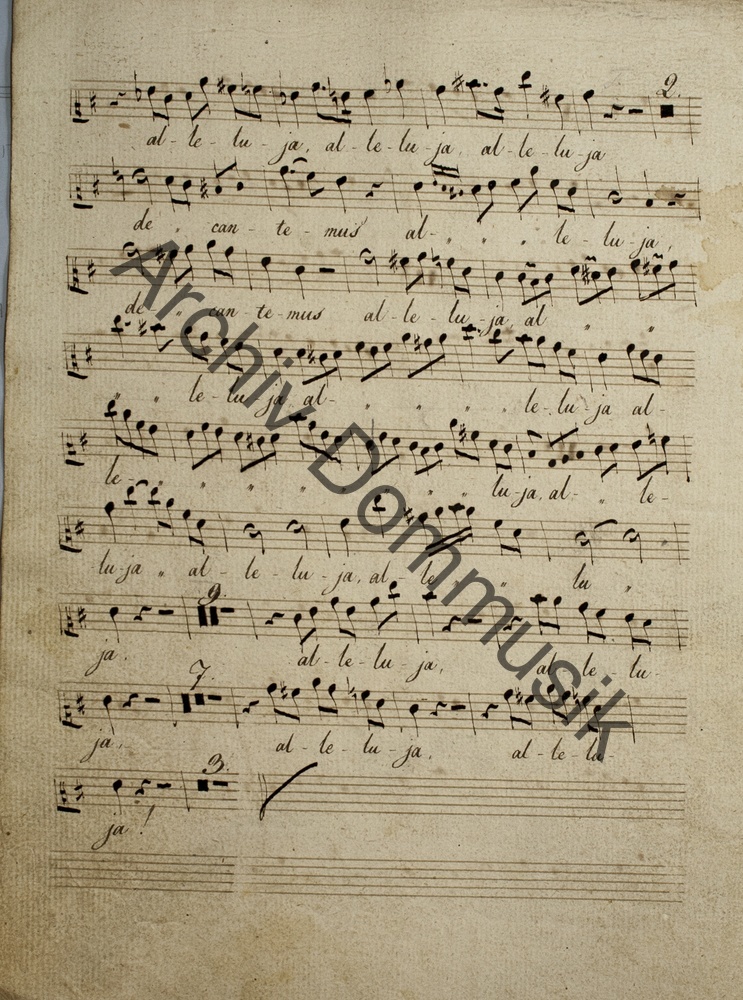 2.
al - le - lu - ja, al - le - lu - ja, al - le - lu - ja
de „ can - te - mus al - „ „ „ le - lu - ja,
de - „ can - te - mus al - le - lu - ja al „ „
„ „ le - lu - ja al - „ „ „ „ le - lu - ja al -
le - „ „ „ „ „ „ „ lu - ja, al - „ le -
lu - ja „ al - le - lu - ja, al - le „ lu „
9.
ja. al - le - lu - ja, al - le - lu -
7.
ja, al - le - lu - ja, al - le - lu -
3.
ja!
Archiv Dommusik